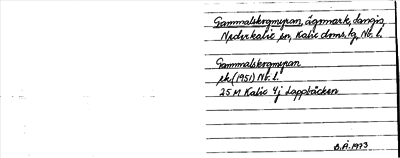 Gammalskogmyran, ägomark, dangis,
Nederkalix sn, Kalix doms.tg, Nb. l.
Gammalskogmyran
ek (1951) Nb. l.
25 M Kalix 4j Lappbäcken
B.Å. 1973